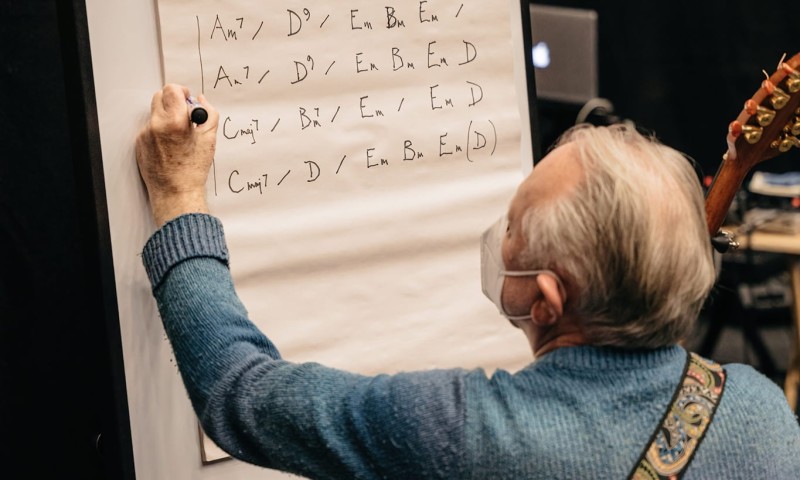 Am7 / D9 / Em Bm Em /
Am7 / D9 / Em Bm Em D
Cmaj7 / Bm7 / Em / Em D
Cmaj7 / D / Em Bm Em (D)